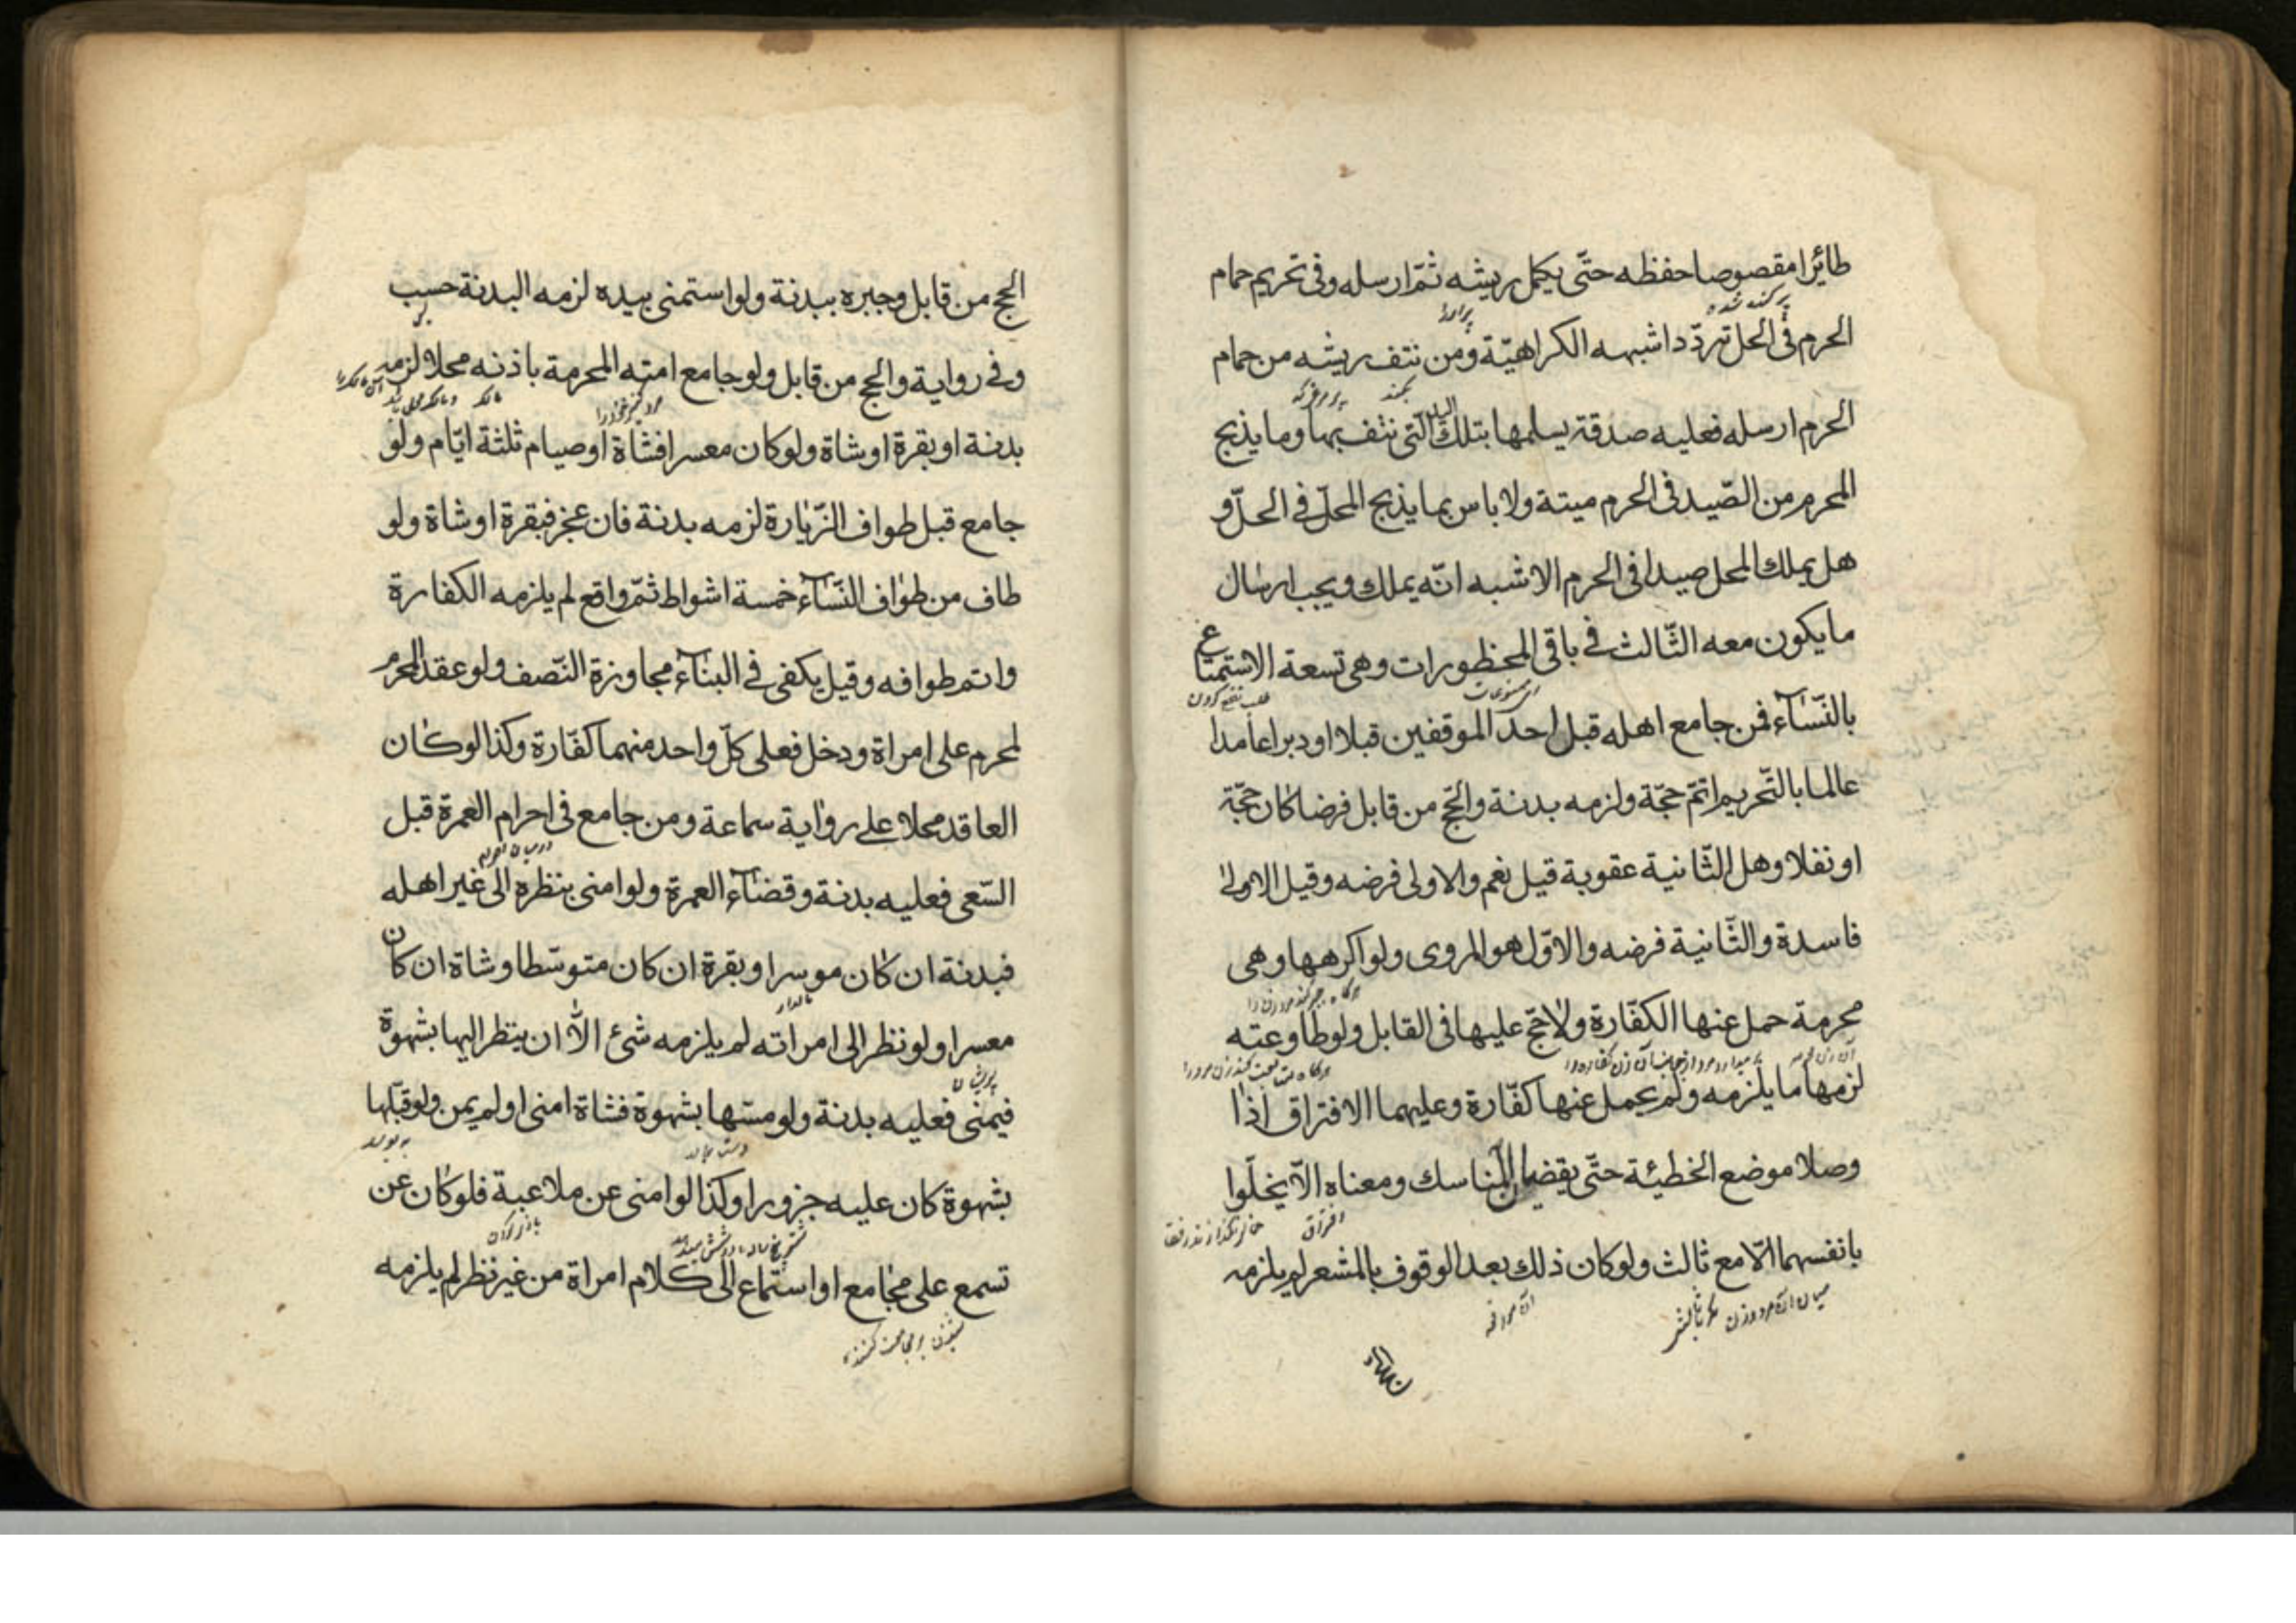 طائرا مقصوصا حفظه حتّى يكمل ريشه ثمّ ارسله وفى تحريم حمام
پركنده شده
الحرم فى الحل تردّد اشبهه الكراهيّة ومن نتف ريشه من حمام
بكند
الحرم ارسله فعليه صدقة يسلمها بتلك اليد التى نتف بها وما يذبح
المحرم من الصّيد فى الحرم ميتة ولا باس بما يذبح المحلّ فى الحلّ و
هل يملك المحل صيدا فى الحرم الاشبه انّه يملك ويجب ارسال
ما يكون معه الثّالث فى باقى المحظورات وهى تسعة الاستمتاع
ممنوعات
طلب نفع كردن
بالنّسآء فمن جامع اهله قبل احد الموقفين قبلا او دبرا عامدا
عالما بالتّحريم اتمّ حجّة ولزمه بدنة والحجّ من قابل فرضا كان حجّة
او نفلا وهل الثّانية عقوبة قيل نعم والاولى فرضه وقيل الاولى
فاسدة والثّانية فرضه والاوّل هو المروى ولو اكرهها وهى
محرمة حمل عنها الكفّارة ولا حجّ عليها فى القابل ولو طاوعته
لزمها ما يلزمه ولم يحمل عنها كفّارة وعليهما الافتراق اذا
وصلا موضع الخطيئة حتّى يقضيا المناسك ومعناه الّا يخلّوا
افتراق
بانفسهما الّا مع ثالث ولو كان ذلك بعد الوقوف بالمشعر لم يلزمه
الحج من قابل وجبره ببدنة ولو استمنى بيده لزمه البدنة حسب
وفى رواية والحج من قابل ولو جامع امته المحرمة باذنه محلا لزمه
بدنة او بقرة او شاة ولو كان معسرا فشاة او صيام ثلثة ايّام ولو
جامع قبل طواف الزّيارة لزمه بدنة فان عجز فبقرة او شاة ولو
طاف من طواف النّسآء خمسة اشواط ثمّ واقع لم يلزمه الكفارة
واتم طوافه وقيل يكفى فى البنآء مجاوزة النّصف ولو عقد المحرم
لمحرم على امراة ودخل فعلى كلّ واحد منهما كفّارة وكذا لو كان
العاقد محلا على رواية سماعة ومن جامع فى احرام العمرة قبل
السّعى فعليه بدنة وقضآء العمرة ولو امنى بنظره الى غير اهله
فبدنة ان كان موسرا وبقرة ان كان متوسّطا وشاة ان كان
مالدار
معسرا ولو نظر الى امراته لم يلزمه شئ الّا ان ينظر اليها بشهوة
پريشان
فيمنى فعليه بدنة ولو مسّها بشهوة فشاة امنى او لم يمن ولو قبّلها
بشهوة كان عليه جزورا وكذا لو امنى عن ملاعبة فلو كان عن
بازى كردن
تسمع على مجامع او استماع الى كلام امراة من غير نظر لم يلزمه